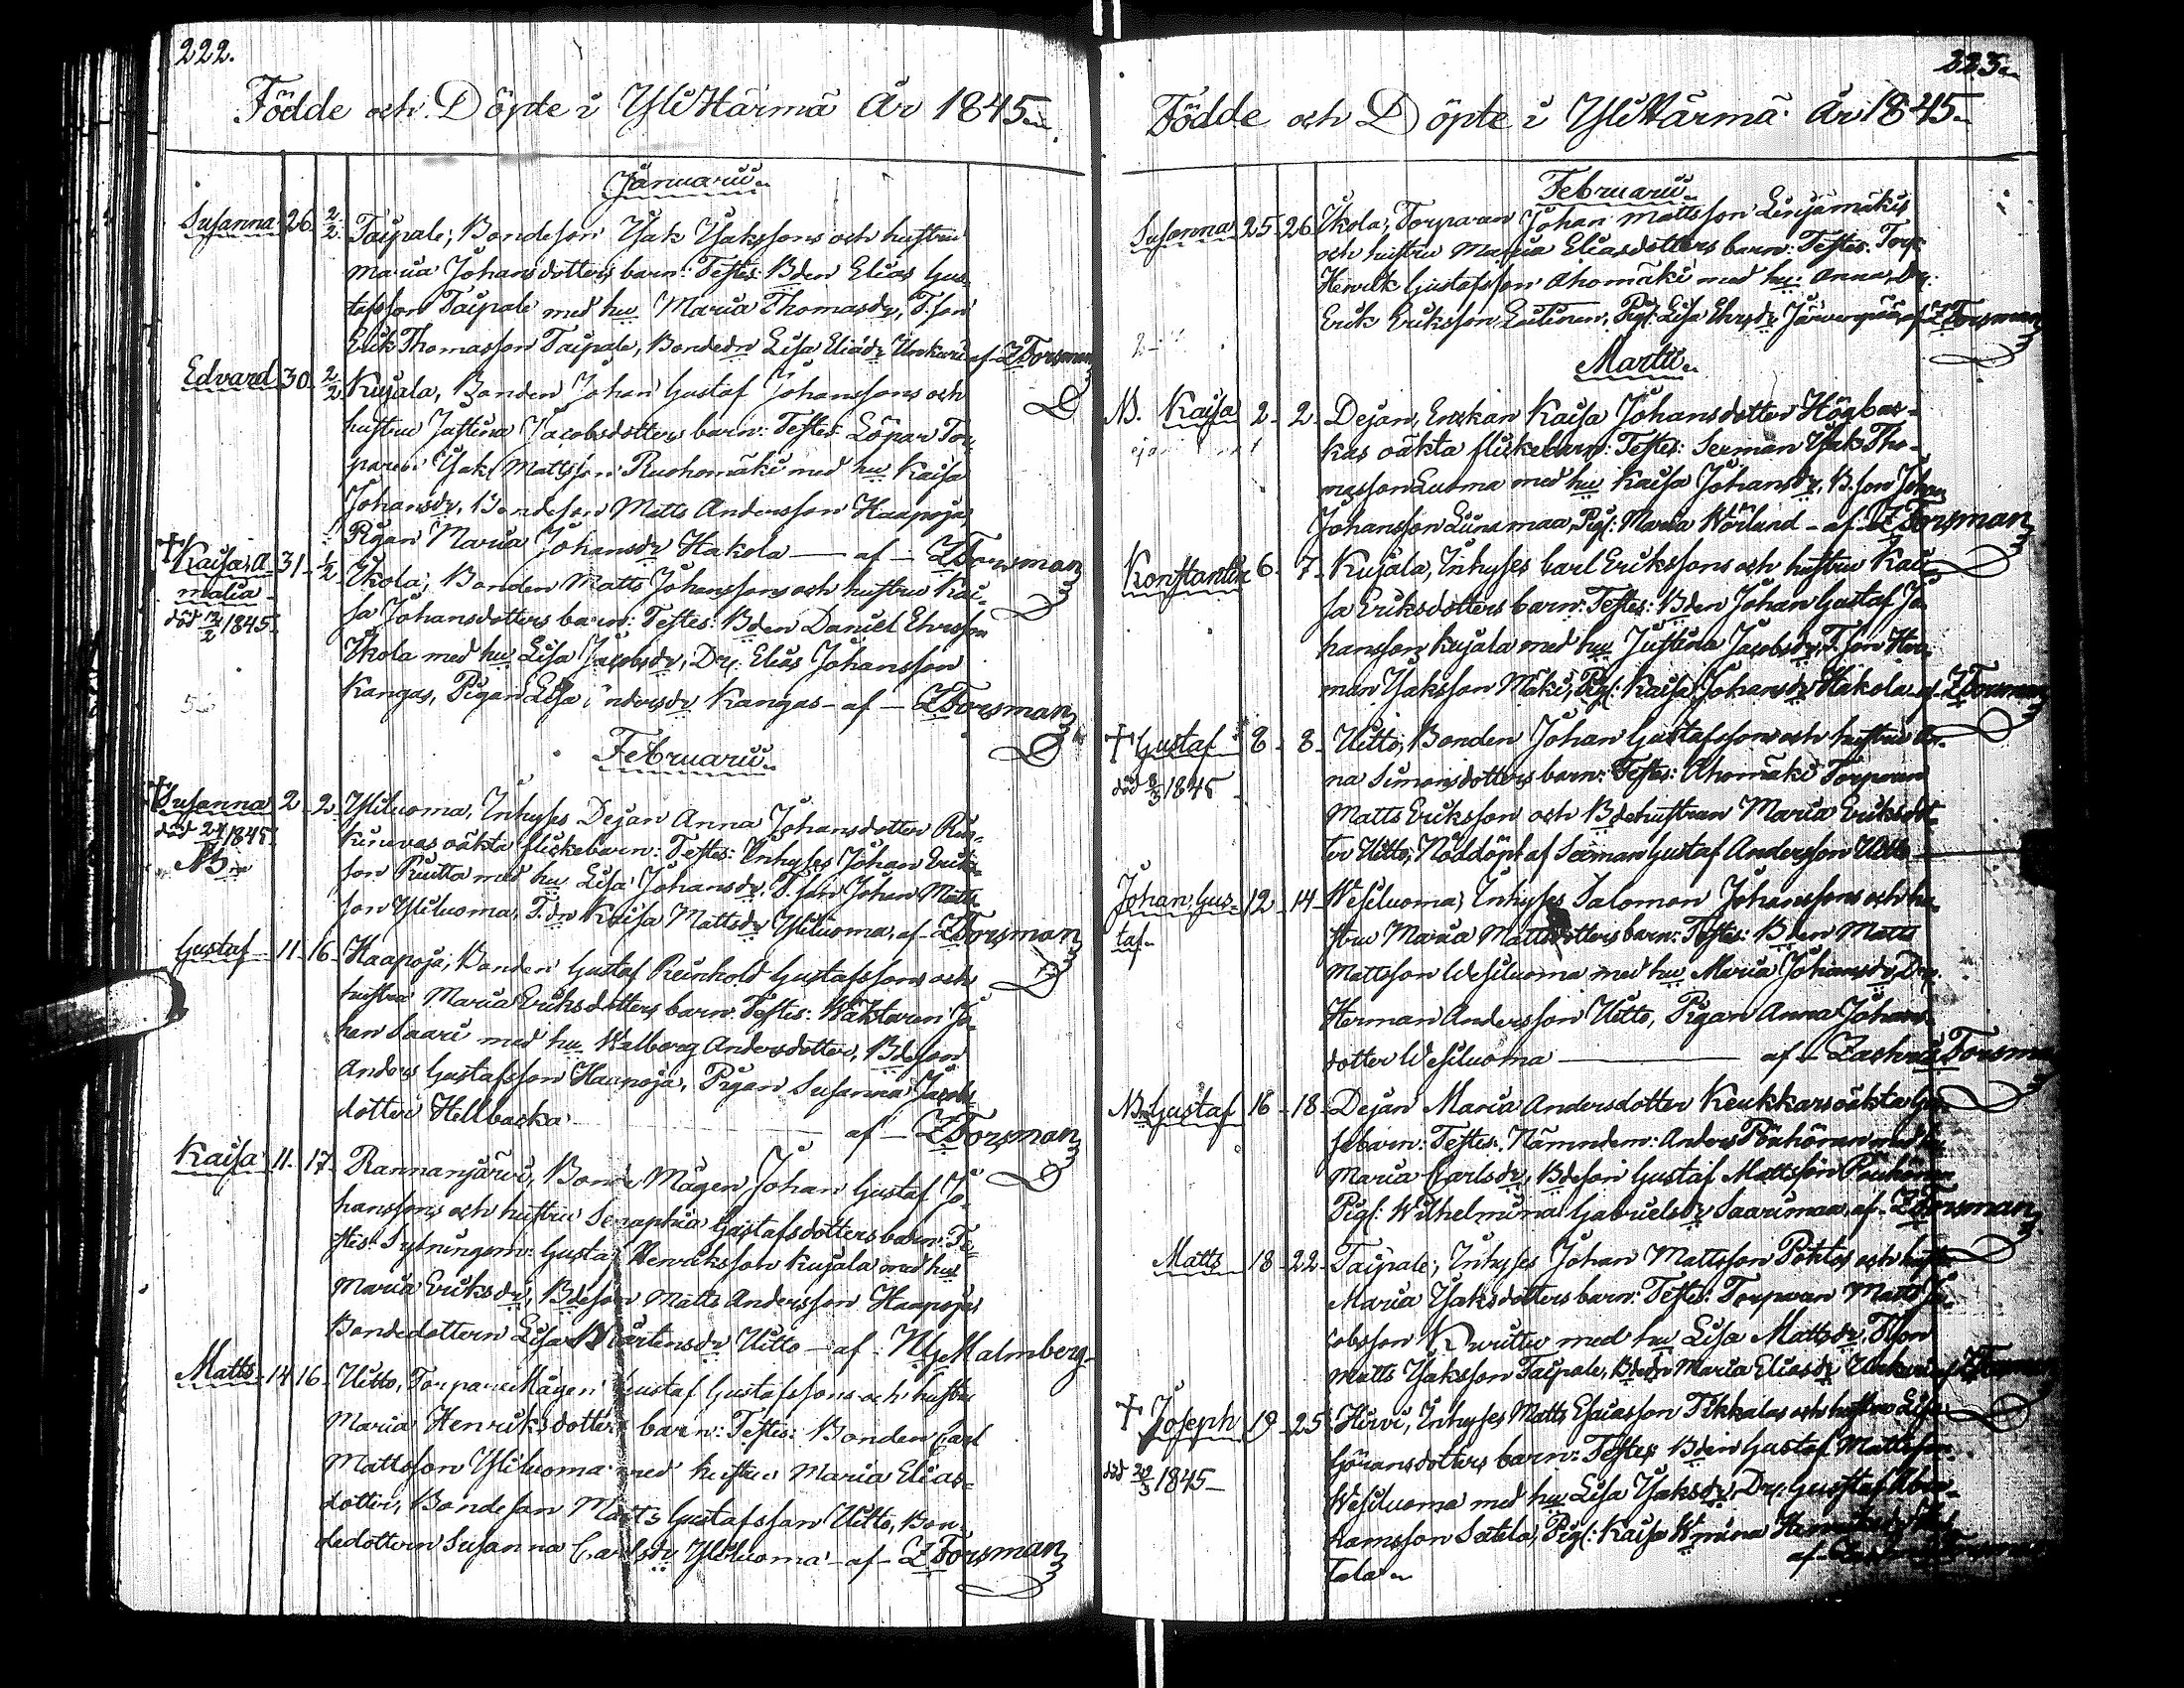 222.
Födde och Döpte i YliHärmä År 1845
Januarii
Susanna 26 2/2 Taipale; Bondeson Isak Isakssons och hustru
Maria Johansdotters barn: Testes: Bden Elias Gus-
tafsson Taipale med hu Maria Thomasdr, T.son
Erik Thomasson Taipale, Bondedr Lisa Eliædr Unkuri af ZForsman
Edvard 30 2/2 Kujala, Bonden Johan Gustaf Johanssons och
hustru Justina Jacobsdotters barn: Testes: Löpar Tor-
paren Isak Mattsson Ruohomäki med hu Kaisa
Johansdr, Bondeson Matts Andersson Haapoja
Pigan Maria Johansdr Hakola — af — ZForsman
† Kaisa A- 31 1/2 Ekola; Bonden Matts Johanssons och hustru Kai-
malia sa Johansdotters barn: Testes: Bden Daniel Ehrsson
död 12/2 1845. Ekola med hu Lisa Jacobsdr, Dr: Elias Johansson
Kangas, Pigan Lisa Andersdr Kangas - af - ZForsman
Februarii
† Susanna 2 2 Yliluoma, Inhyses Dejan Anna Johansdotter
död 1845. oäkta flickebarn: Testes: Inhyses Johan Eriks-
NB son Ruitta med hu Lisa Johansdr. T.son Johan Matts-
son Yliluoma, T.dr Kaisa Mattsdr Yliluoma, af ZForsman
Gustaf 11 16 Haapoja; Bonden Gustaf Reinhold Gustafssons och
hustru Maria Eriksdotters barn: Testes: Wäktaren Jo-
han Saari med hu Walborg Andersdotter, Bdeson
Anders Gustafsson Haapoja, Pigan Susanna Jacobs
dotter Hellbacka — af — ZForsman
Kaisa 11 17 Rannanjärvi, Bonde Mågen Johan Gustaf Jo-
hanssons och hustru Seraphia Gustafsdotters barn: Te-
stes: Sytningsm: Gustaf Henriksson Kujala med hu
Maria Eriksdr, Bdeson Matts Andersson Haapoja
Bondedottern Lisa Mårtensdr Uitto - af - NGMalmberg
Matts 14 16 Uitto, Torpare Mågen Gustaf Gustafssons och hustru
Maria Henriksdotters barn: Testes: Bonden Carl
Mattsson Yliluoma med hustru Maria Elias-
dotter, Bondeson Matts Gustafsson Uitto, Bon-
dedottern Susanna Carlsdr Yliluoma - af - ZForsman
223
Födde och Döpte i YliHärmä År 1845
Februarii
Susanna 25 26 Ekola; Torparen Johan Mattsson Linjamäkis
och hustru Maria Eliasdotters barn: Testes: Torp:
Henrik Gustafsson Ahomäki med hu Anna, Dr:
Erik Eriksson Pig: Lisa Ehrsdr af ZForsman
Martii
NB. Kaisa 2 2 Dejan, Enkan Kaisa Johansdotter Högbac-
kas oäkta flickebarn: Testes: Seeman Isak Tho-
masson Luoma med hu Kaisa Johansdr, B.son Johan
Johansson Liinamaa, Pig: Maria Wörlund - af ZForsman
Konstantin 6 7 Kujala, Inhyses Carl Erikssons och hustru Kai-
sa Eriksdotters barn: Testes: Bden Johan Gustaf Jo-
hansson Kujala med hu Justina Jacobsdr, T.son Her-
man Isaksson Mäki, Pig: Kaisa Johansdr Hakola af ZForsman
† Gustaf 8 8 Uitto, Bonden Johan Gustafssons och hustru An-
död 8/3 1845 na Simonsdotters barn: Testes: Ahomäki Torparen
Matts Eriksson och Bdehustrun Maria Eriksdot-
ter Uitto, Nöddöpt af Seeman Gustaf Andersson Uitto
Johan Gus- 12 14 Wesiluoma; Inhyses Salomon Johanssons och hu-
taf stru Maria Mattsdotters barn: Testes: Bden Matts
Mattsson Wesiluoma med hu Maria Johansdr, Dr:
Herman Andersson Uitto, Pigan Anna Johans-
dotter Wesiluoma — af - Zachris Forsman
NB Gustaf 16 18 Dejan Maria Andersdotter Keukkars oäkta gos-
sebarn: Testes: Nämndem: Anders Pöuhönen med hu
Maria Carlsdr, Bdeson Gustaf Mattsson Pöuhönen
Pig: Wilhelmina Gabrielsdr Saarimaa, af ZForsman
Matts 18 22 Taipale; Inhyses Johan Mattsson och hustru
Maria Isaksdotters barn: Testes: Torparen Matts Ja-
cobsson med hu Lisa Mattsdr, T.son
Matts Isaksson Taipale, Bdedr Maria Eliasdr Unkuri af ZForsman
† Joseph 19 25 Hirvi, Inhyses Matts Esaiasson Tikkalas och hustru Lisa
död 20/3 1845 Göransdotters barn: Testes: Bden Gustaf Mattsson
Wesiluoma med hu Lisa Isaksdr, Dr: Gustaf Abra-
hamsson Pig: Kaisa
tala af